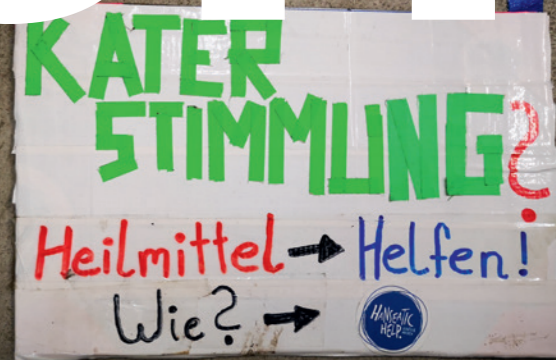 KATER
STIMMUNG?
Heilmittel → Helfen!
Wie? →
HANSEATIC
HELP